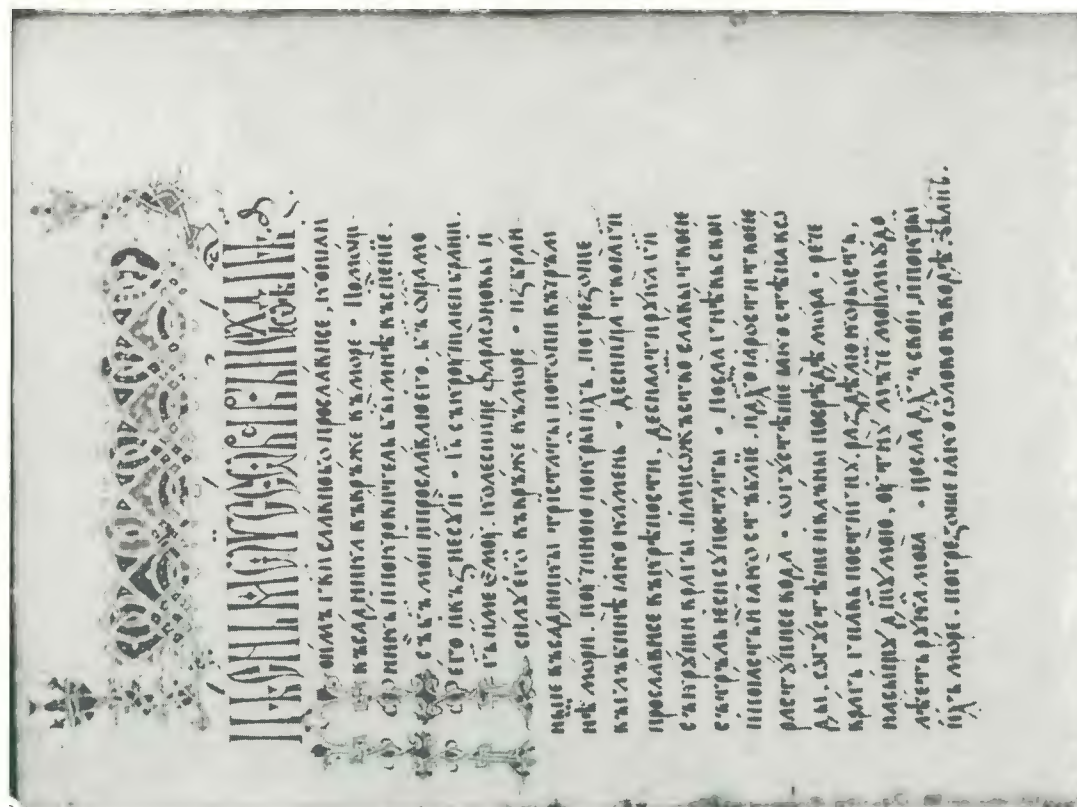 ПѢСНЬ МОѴСЕѠВА
Поимъ гви славнобо прослависе, кон и
въсадника въврьже въ море · Помощ
никь и покровитель бы мнѣ въ спсение.
Съ бъ мои и прославлю его, бъ оца мо
его и възнесу и · Гь съкрꙋшаеи брани.
гь име емꙋ. колесницѥ фараѡновы и
силꙋ его въврьже въ море · избран
ныѥ въсадникы тристаты потопи въ чрьм
нѣ мори. пꙋчиною покры ихь. погрезоше
въ глꙋбинѣ ꙗко камень · десница твоа ги
прослависе въ крѣпости. деснаа ти рꙋка ги
съкрꙋши врагы. и множьством славы твоее
сьтрьль еси сꙋпостаты · посла гнѣвь свои
и поꙗсть ꙗ ꙗко стьблїе. и дхом ꙗрости твоее
растꙋписе вода · ѡгꙋстѣше ꙗко стѣна во
ды. ѡгꙋстѣше и вльны посрѣдѣ мора · рече
врагь гнавь постигнꙋ раздѣлю користь,
насыщꙋ дшꙋ мою, оубїю мьчемь моимь гдо
дѣеть рꙋка моа · посла дхь свои, и покры
ихь море. погрезоше ꙗко олово въ водѣ ѕѣлнѣ.